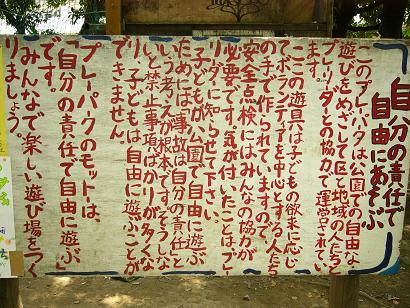 自分の責任で
自由にあそぶ
このプレーパークは、公園での自由な
遊びをめざして区と地域の人たちと
プレーリーダーとの協力で運営されてい
ます。
ここの遊具は子どもの欲求に応じ
てボランティアを中心とする人たち
の手で作られていますので、
安全点検にはみんなの協力が
必要です。気が付いたことはプレー
リーダーに知らせて下さい。
子どもが公園で自由に遊ぶ
ためには、「事故は自分の責任」と
いう考えが根本です。そうしな
いと禁止事項ばかりが多くな
り、子どもは自由に遊ぶことが
できません。
プレーパークのモットーは、
「自分の責任で自由に遊ぶ」
です。
みんなで楽しい遊び場をつく
りましょう。